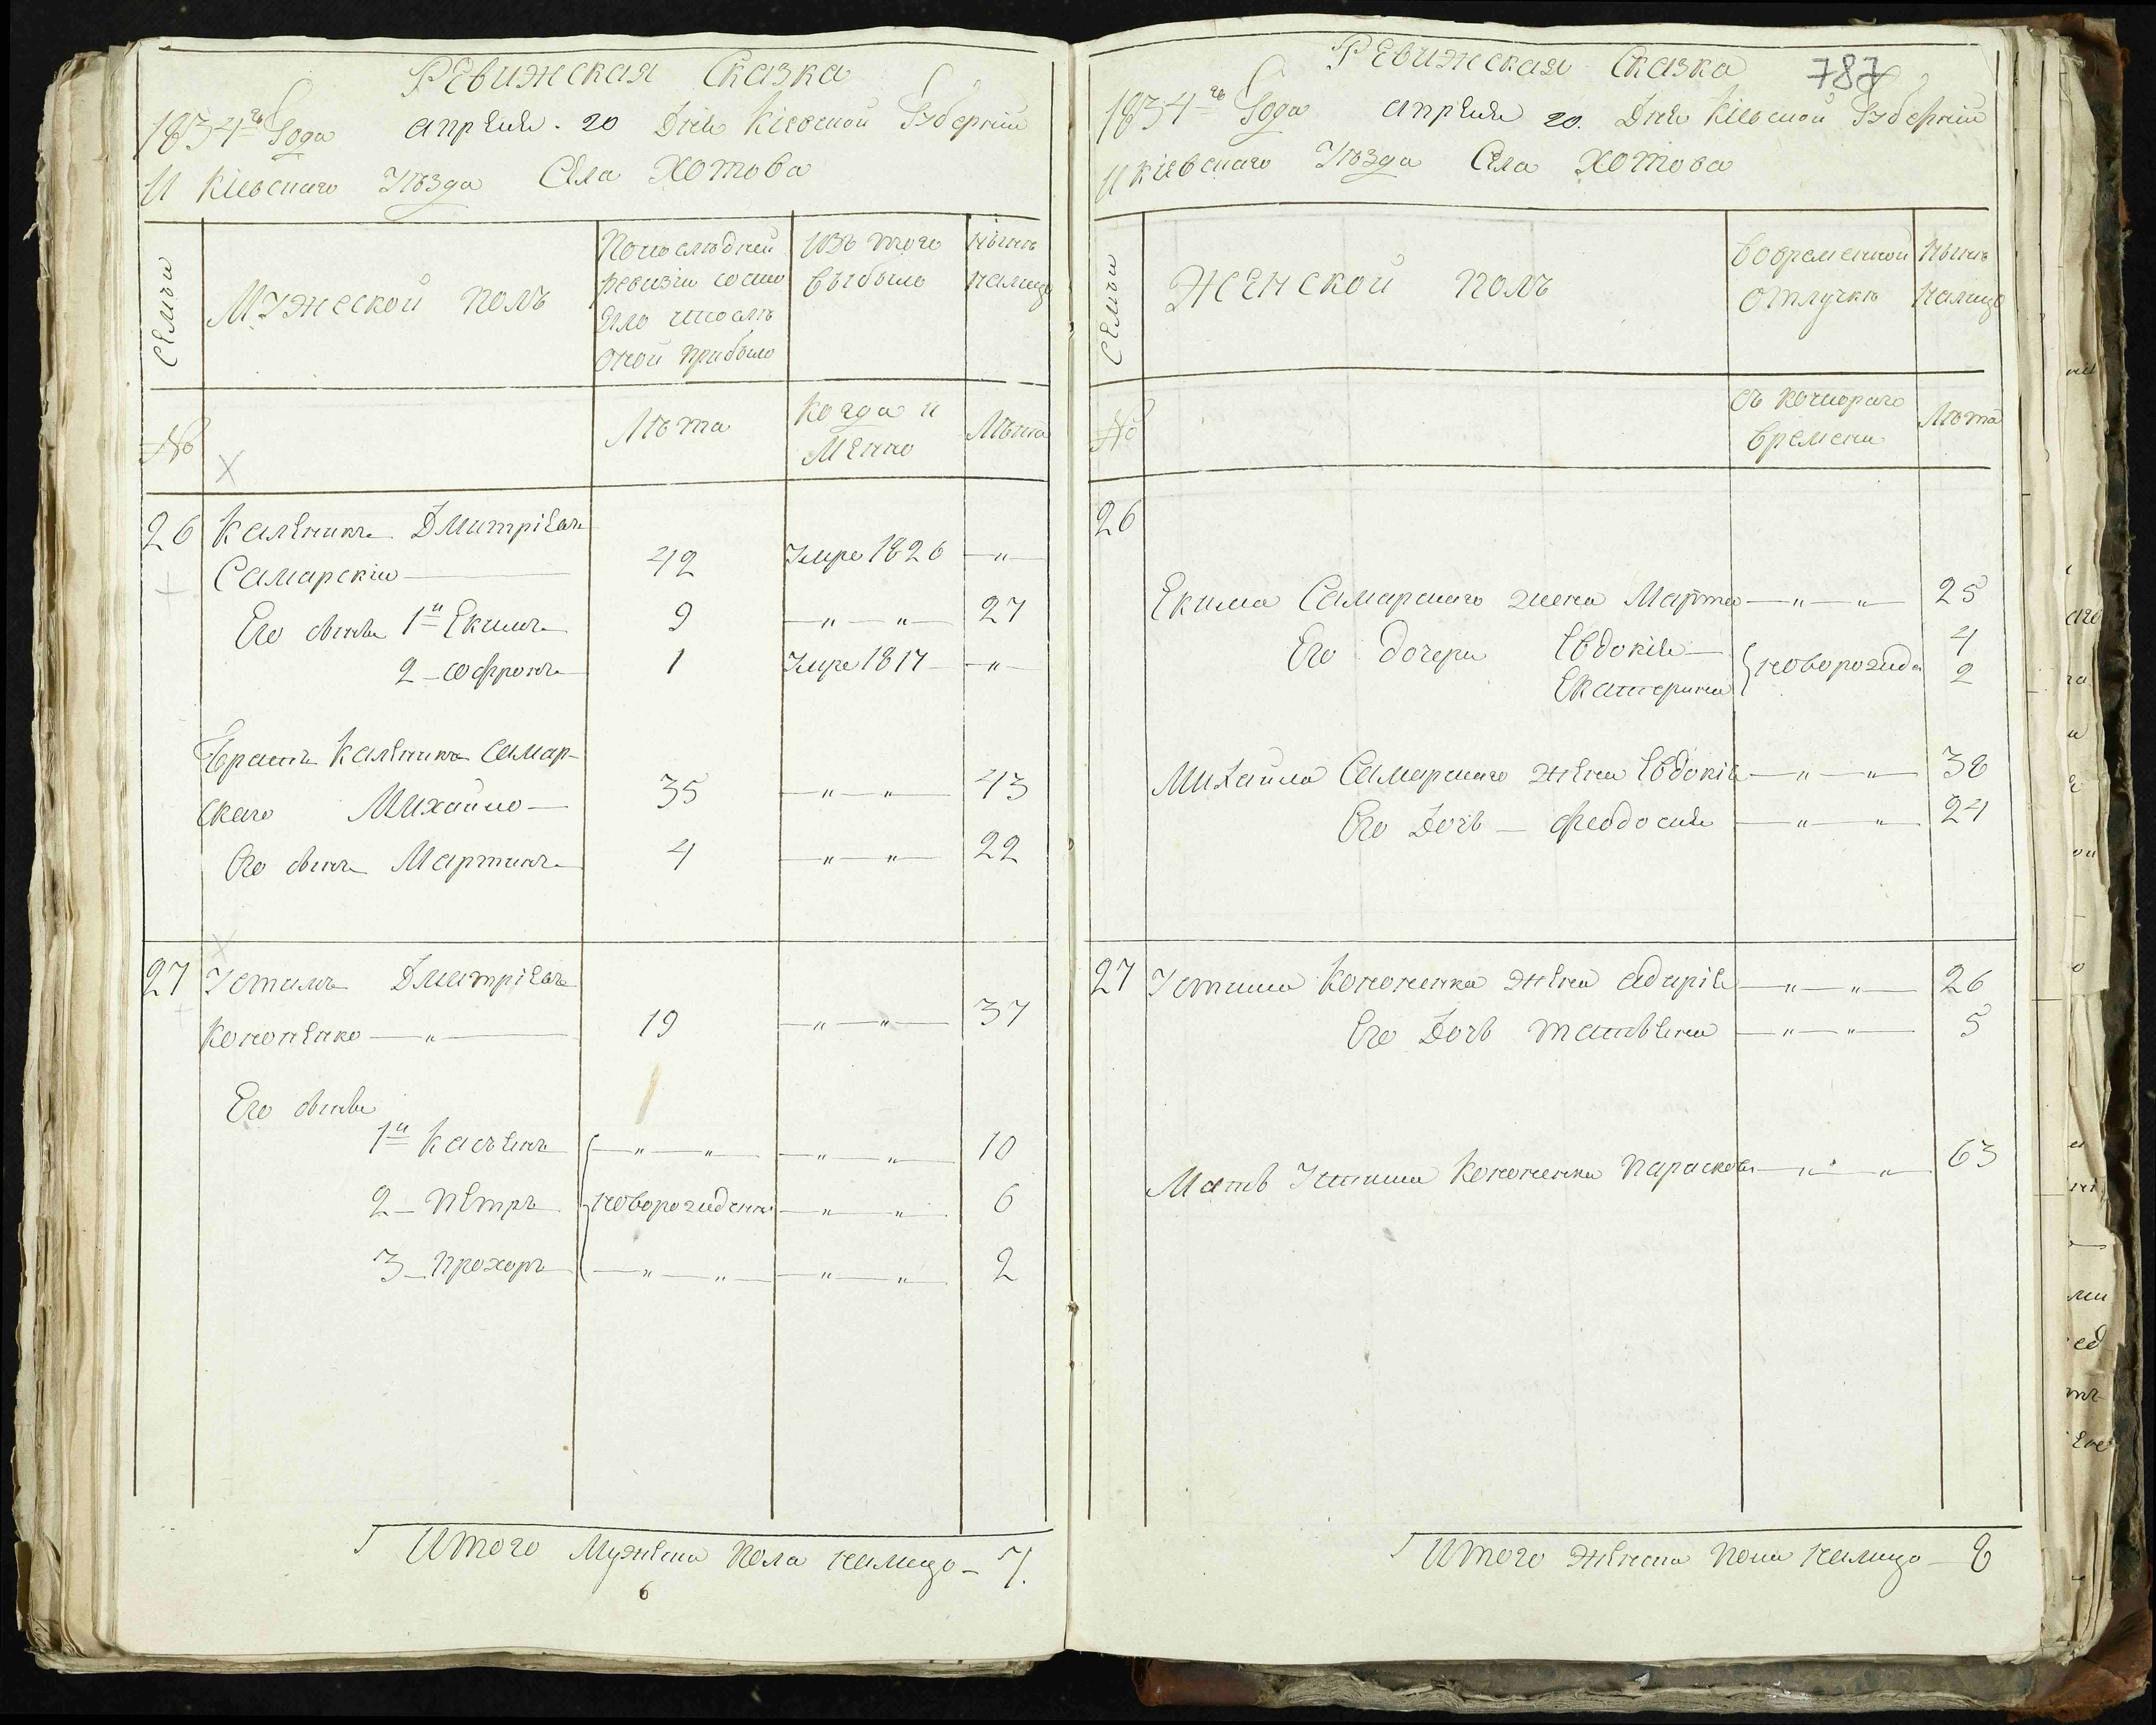 Ревижская Сказка
1834го Года апреля. 20 Дня Кіевской Губерніи
И Кіевскаго Уѣзда Села Хотова
Семьи
Мужеской полъ
Попоследней
ревизіи состо
яло ипослѣ
оной прибыло
Изъ того
выбыло
Нынѣ
налицо
№
Лѣта
Когда и
Менно
Лѣта
26 Каленикъ Дмитріевъ
Самарскій 42 Умре 1826 — " —
Его сыновья 1й Екимъ 9 — " — " — 27
2 — Софронъ 1 Умре 1817 — " —
Братъ Каленика Самар-
скаго Михайло — 35 — " — " — 43
Его сынъ Мартинъ 4 — " — " — 22
27 Устимъ Дмитріевъ
Кононенко — " — 19 — " — " — 37
Его сыновья
1й Касъянъ — " — " — — " — " — 10
2 — Петръ новорожденны — " — " — 6
3 — Прохоръ — " — " — — " — " — 2
Итого Мужеска Пола налицо — 7.
6
Ревижская Сказка 787
1834го Года апреля 20. Дня Кіевской Губерніи
И Кіевскаго Уѣзда Села Хотова
Семьи
Женской полъ
Вовременной
отлучкѣ
Нынѣ
Налицо
№
Съ котораго
времени
Лѣта
26
Екима Самарскаго жена Марта — " — " — 25
Его дочери Евдокія — 4
Екатерина новорожде 2
Михайла Самарскаго жена Евдокія — " — " — 38
Его Дочь — Феодосія — " — " — 24
27 Устима Кононенка жена — " — " — 26
Его Дочь Татьяна — " — " — 5
Мать Устима Кононенка Парасковья — " — " — 63
Итого женска пола налицо — 8